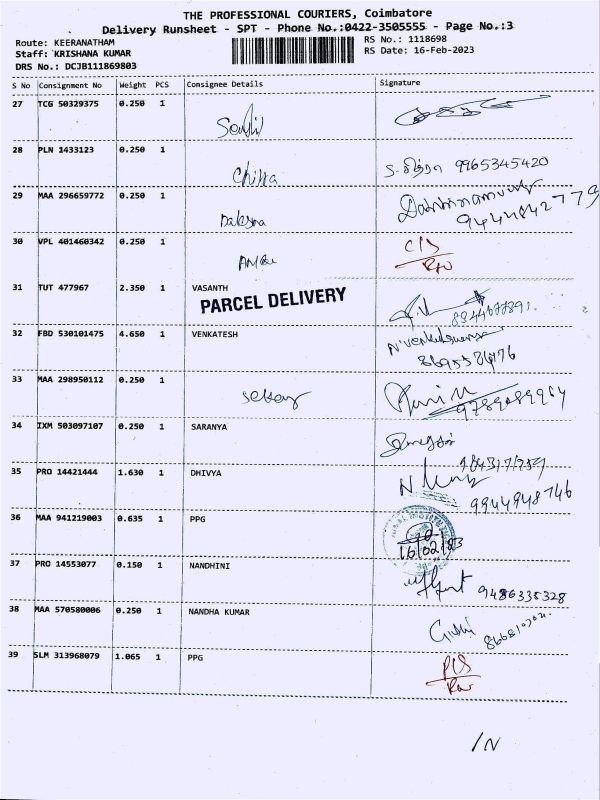 THE PROFESSIONAL COURIERS, Coimbatore
Delivery Runsheet - SPT - Phone No.:0422-3505555 - Page No.:3
Route: KEERANATHAM
RS No.: 1118698
Staff: KRISHANA KUMAR
RS Date: 16-Feb-2023
DRS No.: DCJB111869803
S No Consignment No Weight PCS Consignee Details Signature
27 TCG 50329375 0.250 1
28 PLN 1433123 0.250 1 Chitra சித்ரா 9965345420
29 MAA 296659772 0.250 1 Daksna 9444842779
30 VPL 401460342 0.250 1
31 TUT 477967 2.350 1 VASANTH
PARCEL DELIVERY
32 FBD 530101475 4.650 1 VENKATESH
33 MAA 298950112 0.250 1 Sekar 9789089964
34 IXM 503097107 0.250 1 SARANYA
35 PRO 14421444 1.630 1 DHIVYA
9944948746
36 MAA 941219003 0.635 1 PPG
16/02/23
37 PRO 14553077 0.150 1 NANDHINI 9486335328
38 MAA 570580006 0.250 1 NANDHA KUMAR
39 SLM 313968079 1.065 1 PPG
/N